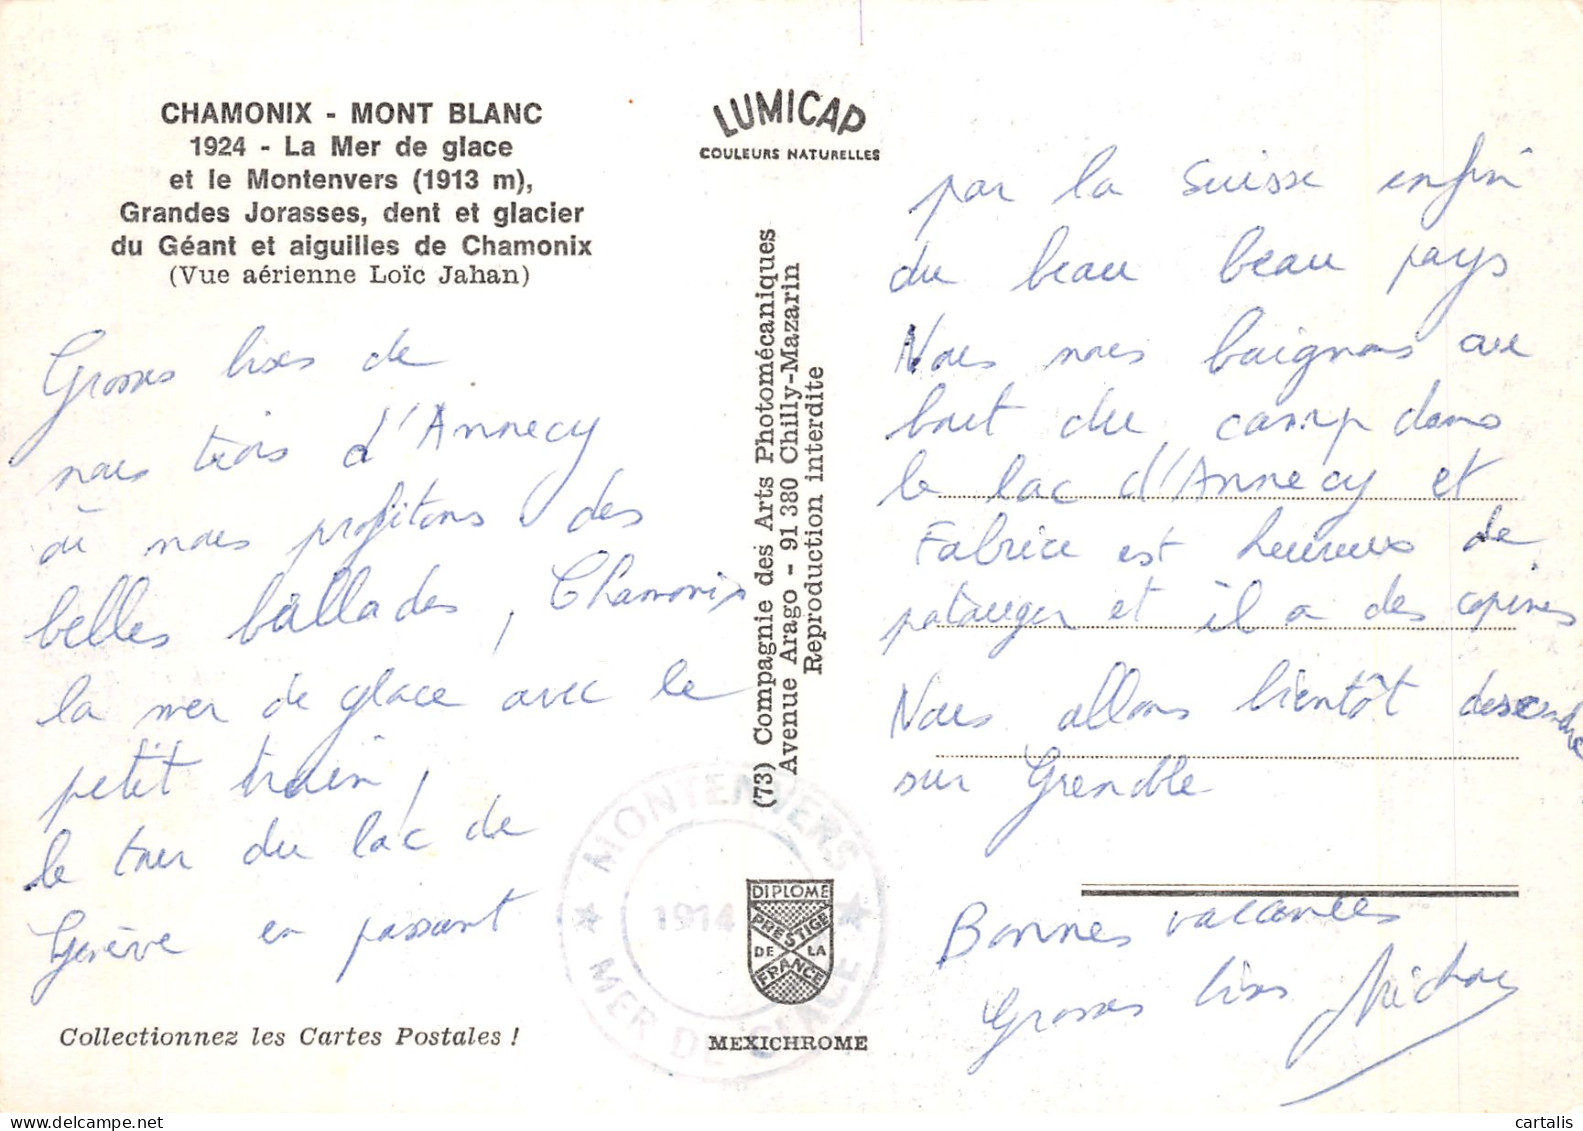 CHAMONIX - MONT BLANC
1924 - La Mer de glace
et le Montenvers (1913 m),
Grandes Jorasses, dent et glacier
du Géant et aiguilles de Chamonix
(Vue aérienne Loïc Jahan)
Grosses bises de
nous trois d'Annecy
où nous profitons des
belles ballades, Chamonix
la mer de glace avec le
petit train,
le tour du lac de
Genève en passant
Collectionnez les Cartes Postales !
LUMICAP
COULEURS NATURELLES
(73) Compagnie des Arts Photomécaniques
Avenue Arago - 91 380 Chilly-Mazarin
Reproduction interdite
MONTENVERS
1914
MER DE GLACE
DIPLOME
PRESTIGE
DE LA
FRANCE
MEXICHROME
par la Suisse enfin
du beau beau pays
Nous nous baignons au
bout du camp dans
le lac d'Annecy et
Fabrice est heureux de
patauger et il a des copines
Nous allons bientôt descendre
sur Grenoble
Bonnes vacances
Grosses bises
cartalis